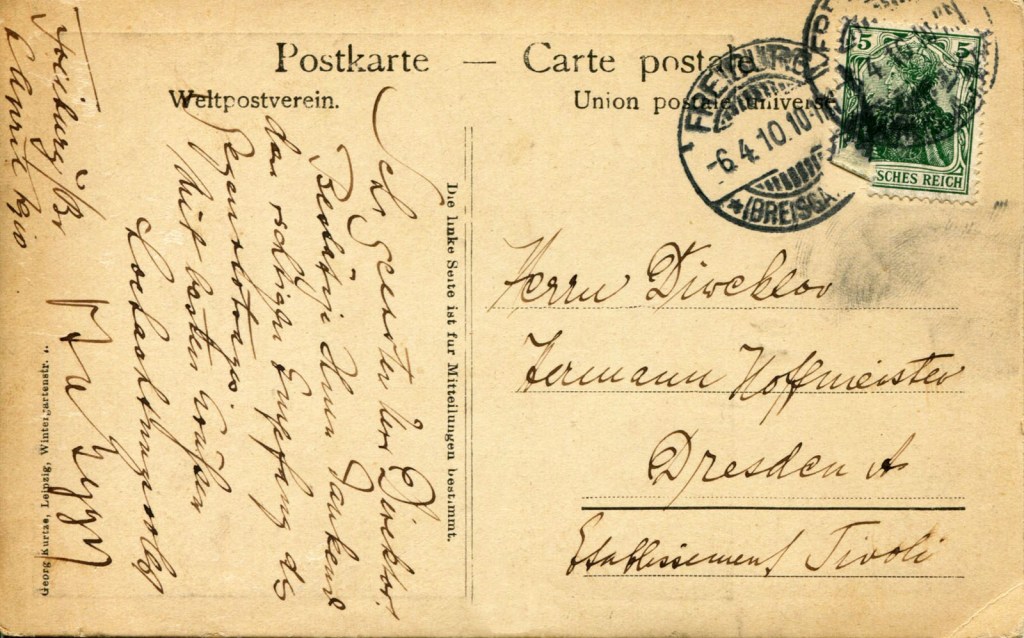 Postkarte — Carte postale
Weltpostverein.
Union postale universe
5 5
SCHES REICH
FREIBURG
-6.4.10.10-11
*(BREISGA
Freiburg i/Br
1910
Sehr geerter Herr Direktor!
Bestätige Ihnen dankend
den richtigen Empfang des
Mit besten Grüßen
Hochachtungsvoll
Die linke Seite ist für Mitteilungen bestimmt.
Georg Kurtae, Leipzig, Wintergartenstr.
Herrn Direcktor
Hermann Hoffmeister
Dresden A
Etablissement Tivoli